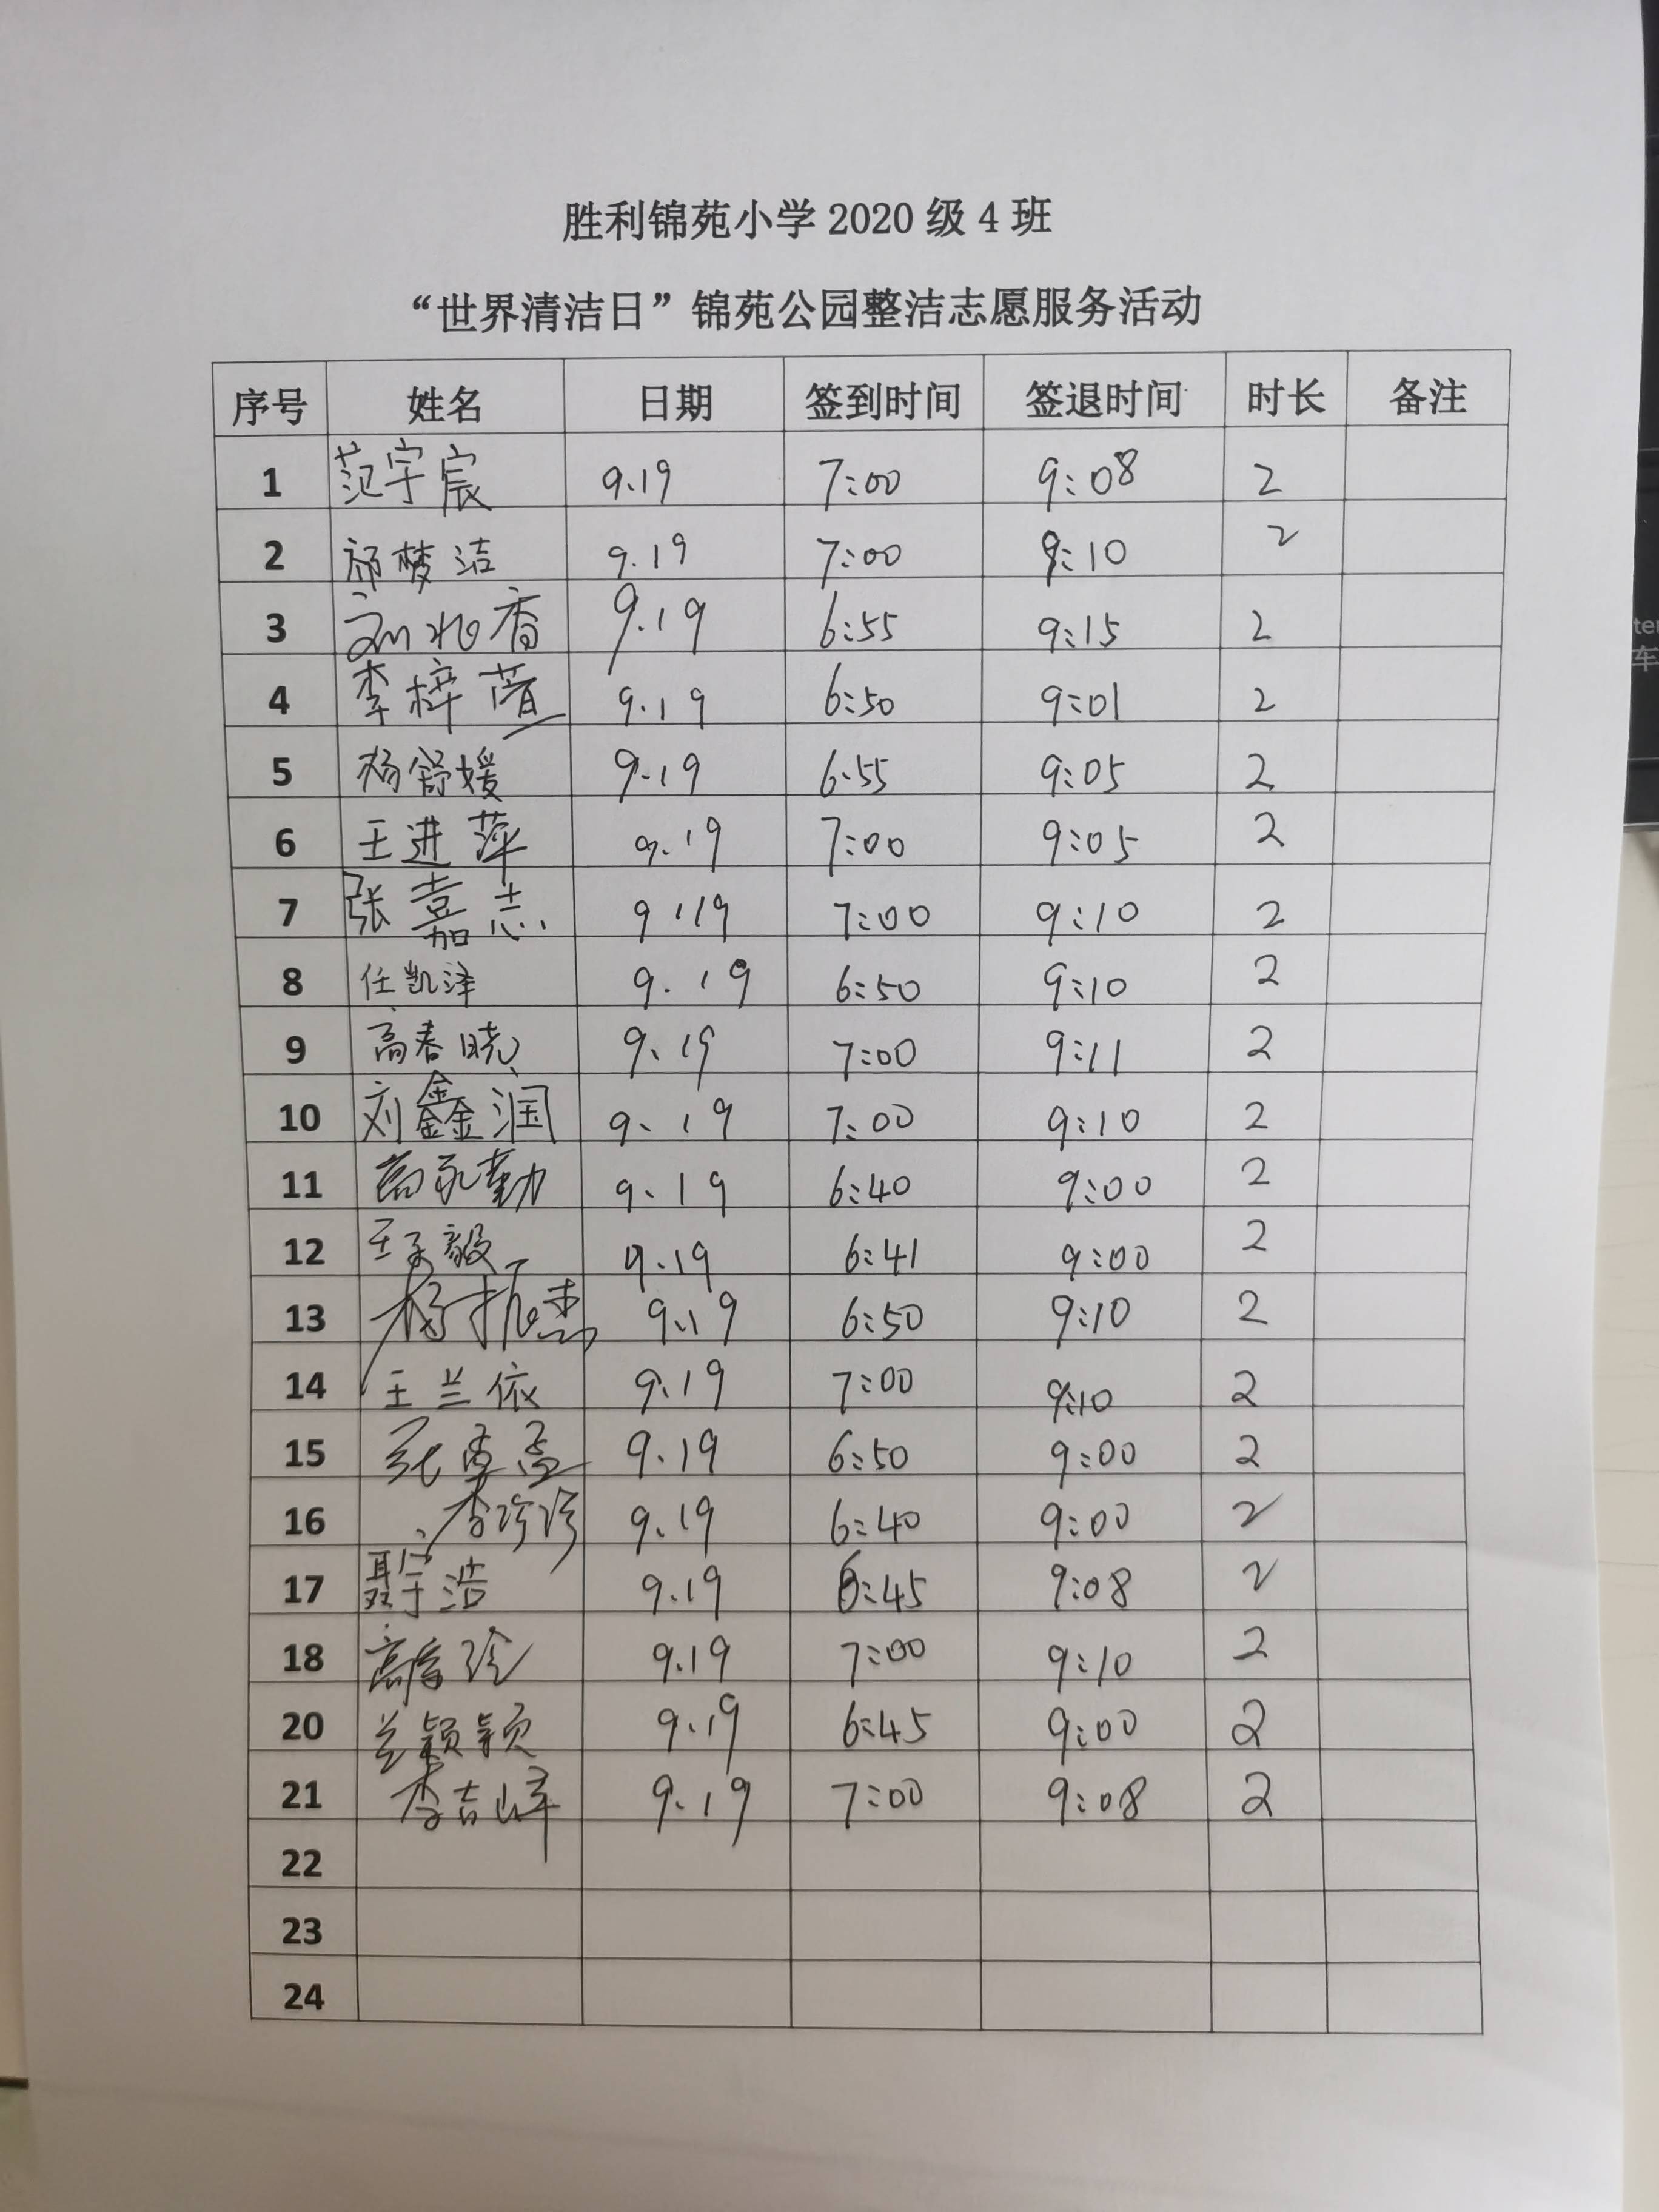 胜利锦苑小学 2020 级 4 班
“世界清洁日”锦苑公园整洁志愿服务活动
序号 姓名 日期 签到时间 签退时间 时长 备注
1 范宇宸 9.19 7:00 9:08 2
2 祁梦洁 9.19 7:00 9:10 2
3 刘兆香 9.19 6:55 9:15 2
4 李梓萱 9.19 6:50 9:01 2
5 杨舒媛 9.19 6:55 9:05 2
6 王进萍 9.19 7:00 9:05 2
7 张嘉志 9.19 7:00 9:10 2
8 任凯泽 9.19 6:50 9:10 2
9 高春晓 9.19 7:00 9:11 2
10 刘鑫润 9.19 7:00 9:10 2
11 高永勤 9.19 6:40 9:00 2
12 王子毅 9.19 6:41 9:00 2
13 杨振杰 9.19 6:50 9:10 2
14 王兰依 9.19 7:00 9:10 2
15 张孟孟 9.19 6:50 9:00 2
16 李珍珍 9.19 6:40 9:00 2
17 聂宇浩 9.19 6:45 9:08 2
18 9.19 7:00 9:10 2
20 兰颖颖 9.19 6:45 9:00 2
21 李吉峰 9.19 7:00 9:08 2
22
23
24